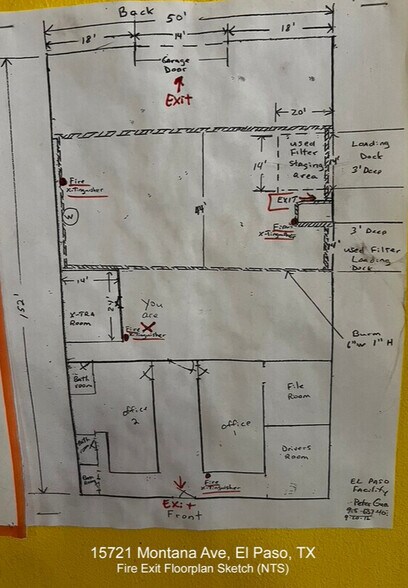 Back
50'
18'
14'
18'
Garage
Door
Exit
20'
used
Filter
staging
area
14'
Loading
Dock
3' Deep
Fire
x-tinguisher
EXIT
W
Fire
x-tinguisher
3' Deep
used Filter
Loading
Dock
14'
X-TRA
Room
You
are
X
Fire
x-tinguisher
152'
Burm
6"w 1"H
Bath
room
office
2
office
1
File
Room
Bath
room
Drivers
Room
Fire
x-tinguisher
Exit
Front
EL PASO
Facility
15721 Montana Ave, El Paso, TX
Fire Exit Floorplan Sketch (NTS)